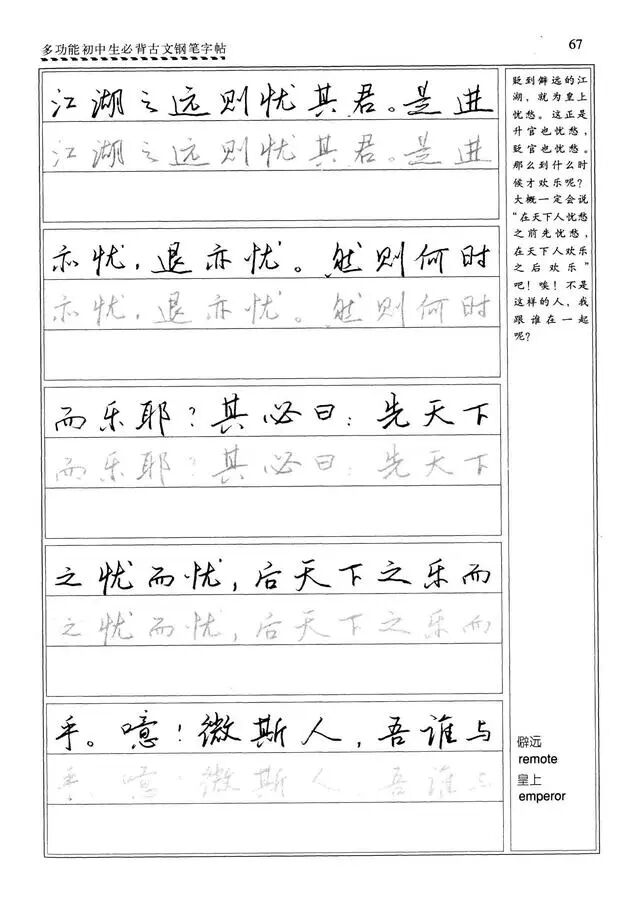 多功能初中生必背古文钢笔字帖
67
江湖之远则忧其君。是进
江湖之远则忧其君。是进
亦忧,退亦忧。然则何时
亦忧,退亦忧。然则何时
而乐耶?其必曰:先天下
而乐耶?其必曰:先天下
之忧而忧,后天下之乐而
之忧而忧,后天下之乐而
乎。噫!微斯人,吾谁与
乎。噫!微斯人,吾谁与
贬到僻远的江
湖,就为皇上
忧愁。这正是
升官也忧愁,
贬官也忧愁。
那么到什么时
候才欢乐呢?
大概一定会说
“在天下人忧愁
之前先忧愁,
在天下人欢乐
之后欢乐”
吧!唉!不是
这样的人,我
跟谁在一起
呢?
僻远
remote
皇上
emperor